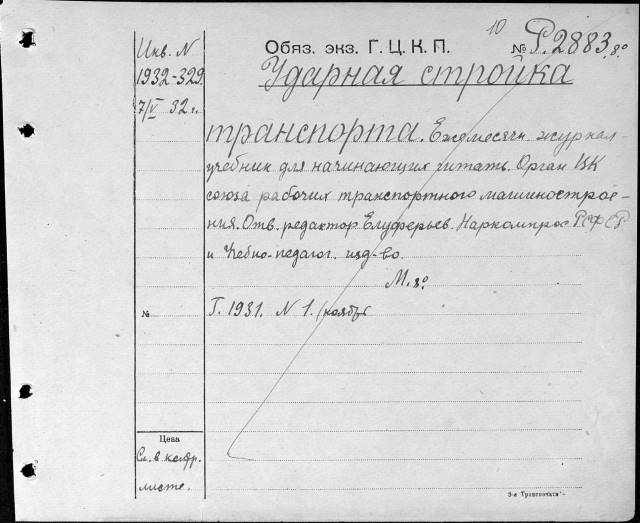 10
Инв. N
1932-329
7/V 32 г.
Обяз. экз. Г. Ц. К. П.
№ Р.2883.8°
Ударная стройка
транспорта. Ежемесячн. журнал-
учебник для начинающих читать. Орган ЦК
союза рабочих транспортного машинострое-
ния. Отв. редактор Елуферьев. Наркомпрос РСФСР
и Учебно-педагог. изд-во.
М. 8°
№
Г. 1931. N 1. (ноябрь
Цена
См. в контр.
листе.
3-я Транспечати